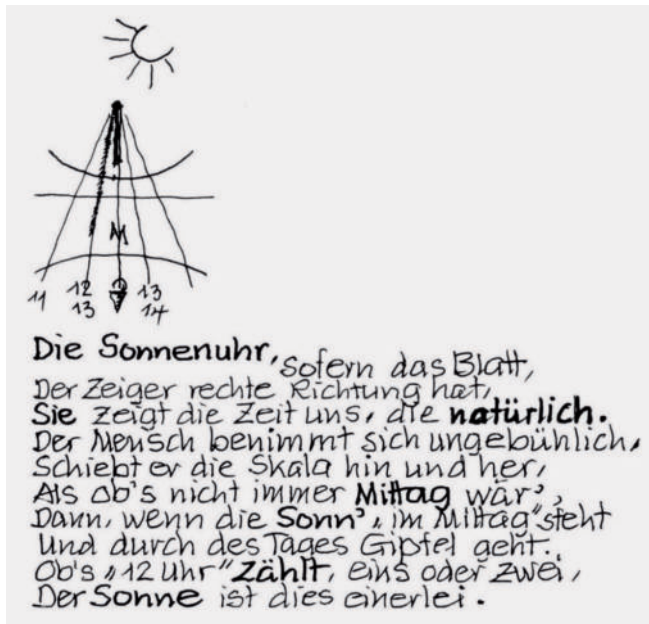 M
11 12 13
13 14
Die Sonnenuhr, sofern das Blatt,
Der Zeiger rechte Richtung hat,
Sie zeigt die Zeit uns, die natürlich.
Der Mensch benimmt sich ungebühlich,
Schiebt er die Skala hin und her,
Als ob's nicht immer Mittag wär',
Dann, wenn die Sonn' „im Mittag" steht
Und durch des Tages Gipfel geht.
Ob's „12 Uhr" zählt, eins oder zwei,
Der Sonne ist dies einerlei.